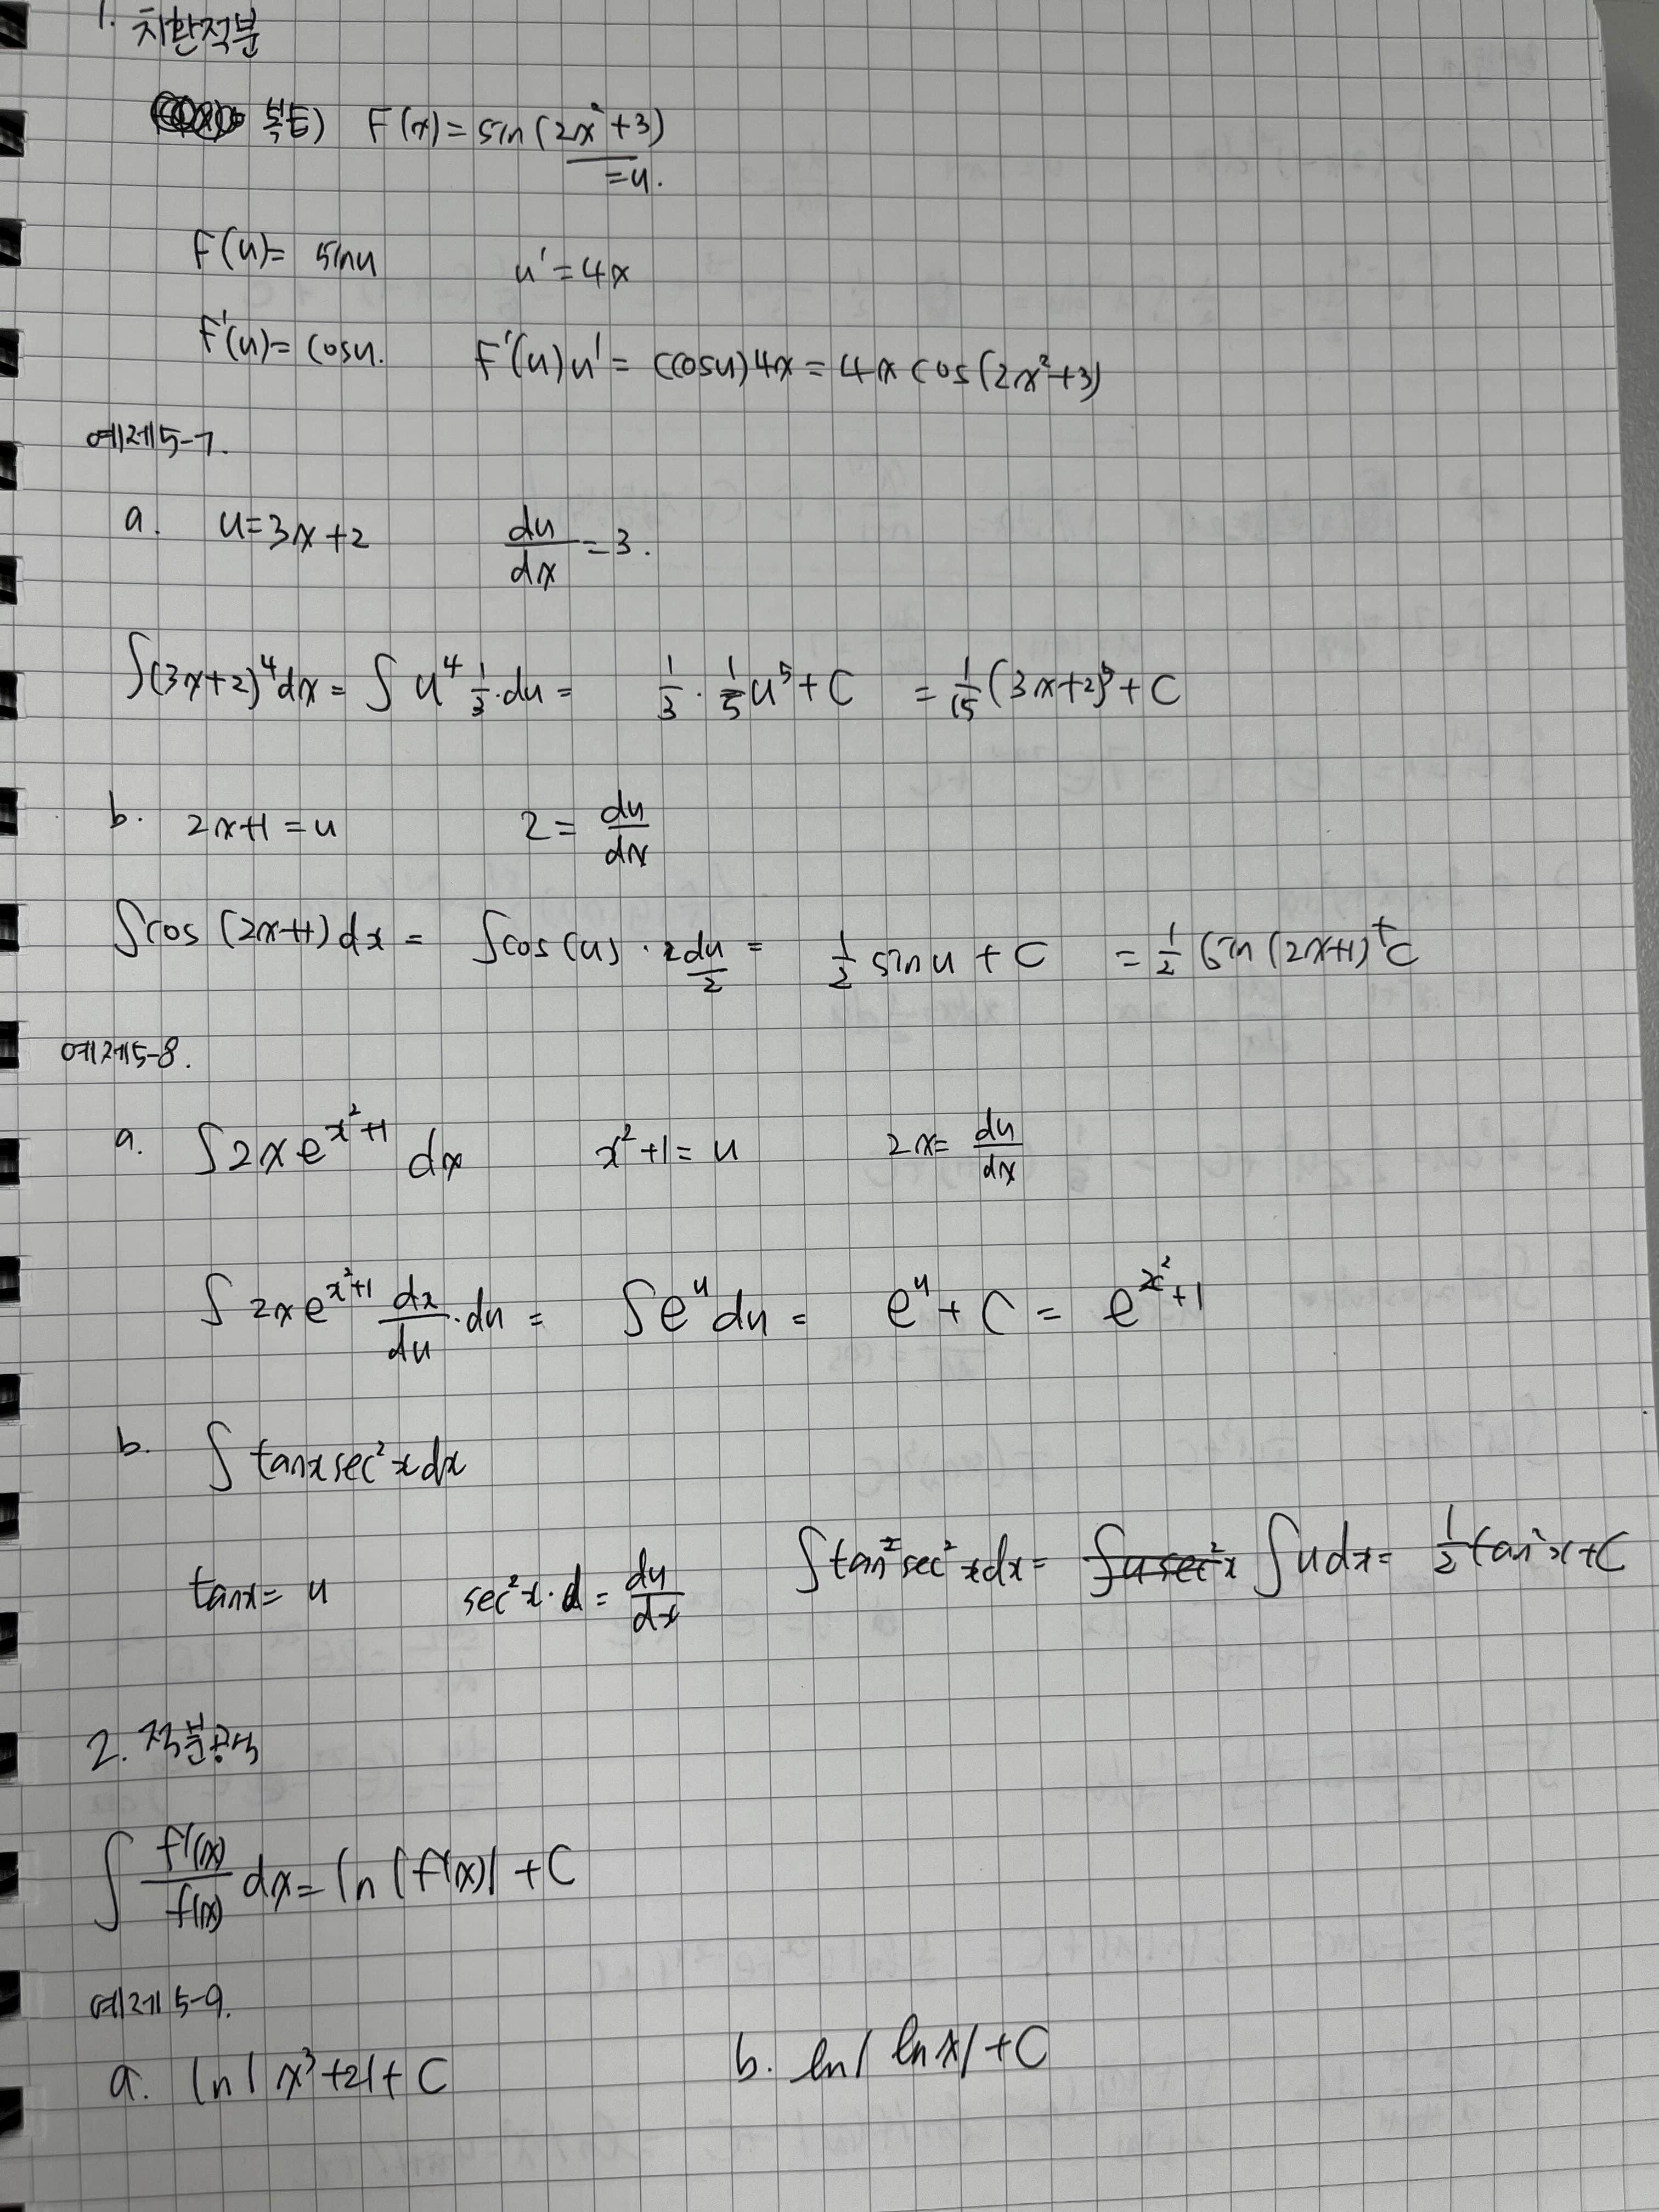 1. 치환적분
복습) F(x) = sin(2x²+3)
=u.
F(u)= sinu u'=4x
F'(u)= cosu. F'(u)u' = (cosu)4x = 4x cos(2x²+3)
예제5-7.
a. u=3x+2 du/dx=3.
∫(3x+2)⁴dx = ∫ u⁴ 1/3·du = 1/3 · 1/5 u⁵+C = 1/15 (3x+2)⁵+C
b. 2x+1=u 2= du/dx
∫cos(2x+1)dx = ∫cos(u) · du/2 = 1/2 sinu + C = 1/2 sin(2x+1)+C
예제5-8.
a. ∫2xe^(x²+1) dx x²+1=u 2x= du/dx
∫2xe^(x²+1) dx/du ·du = ∫e^u du = e^u + C = e^(x²+1)
b. ∫tanxsec²xdx
tanx= u sec²x· = du/dx ∫tan sec²xdx= ∫udx= 1/2 tan²x+C
2. 적분공식
∫ f'(x)/f(x) dx= ln|f(x)| +C
예제5-9.
a. ln|x³+2|+C b. ln|lnx|+C